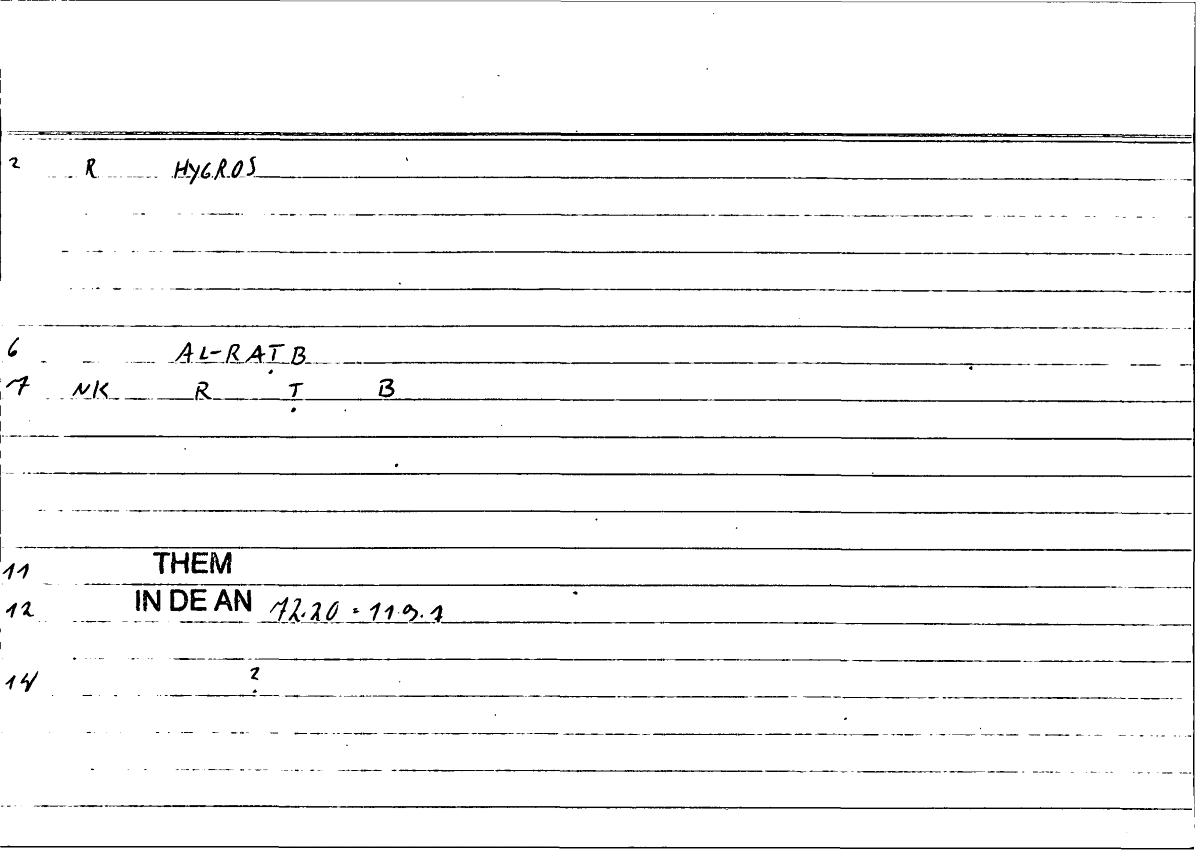 2 R HYGROS
6 AL-RAṬB
7 NK R Ṭ B
11 THEM
12 IN DE AN 72.20 = 11.9.1
14 ?